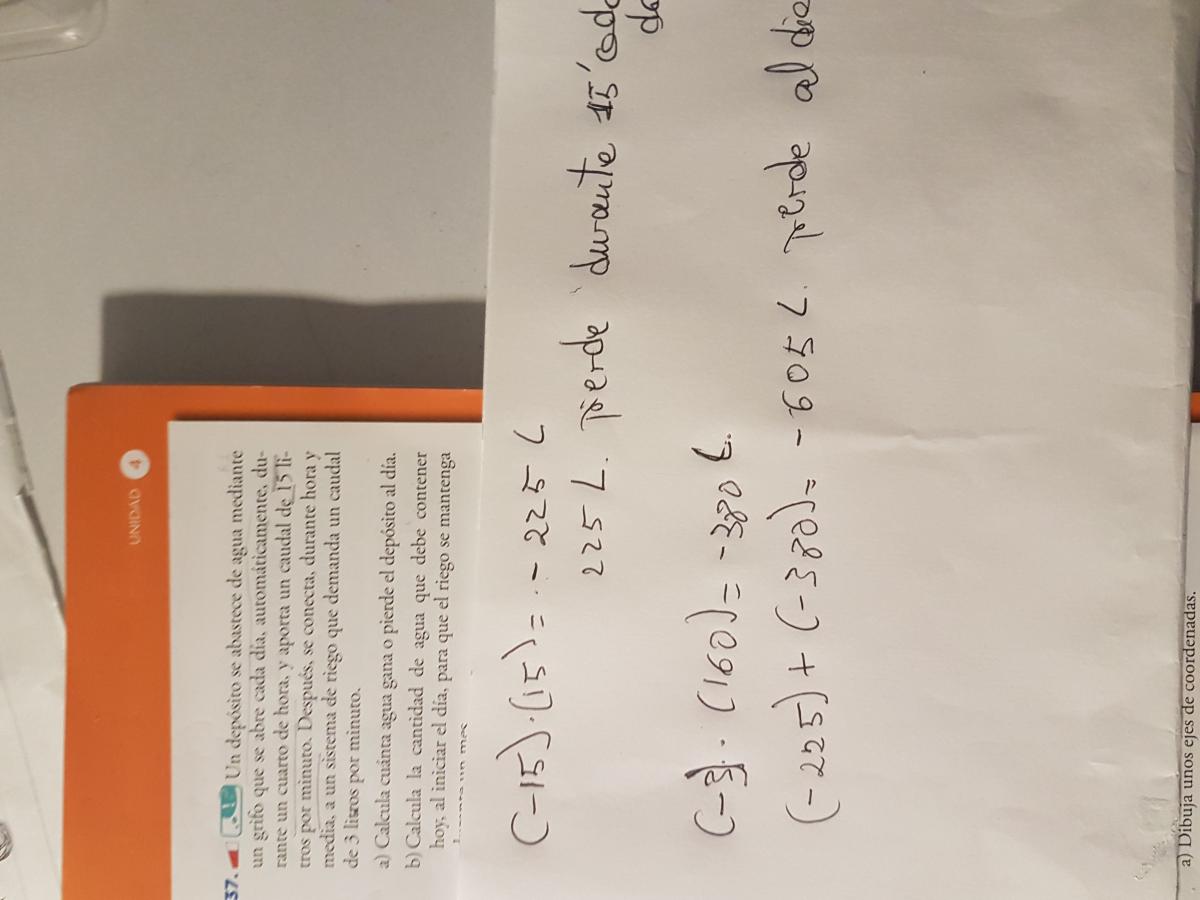 UNIDAD 4
37. Un depósito se abastece de agua mediante
un grifo que se abre cada día, automáticamente, du-
rante un cuarto de hora, y aporta un caudal de 15 li-
tros por minuto. Después, se conecta, durante hora y
media, a un sistema de riego que demanda un caudal
de 3 litros por minuto.
a) Calcula cuánta agua gana o pierde el depósito al día.
b) Calcula la cantidad de agua que debe contener
hoy, al iniciar el día, para que el riego se mantenga
(-15)·(15)= - 225 L
225 L. pierde durante 15'
(-3)·(160)= -380 L.
(-225)+(-380)= -605 L. pierde al
a) Dibuja unos ejes de coordenadas.